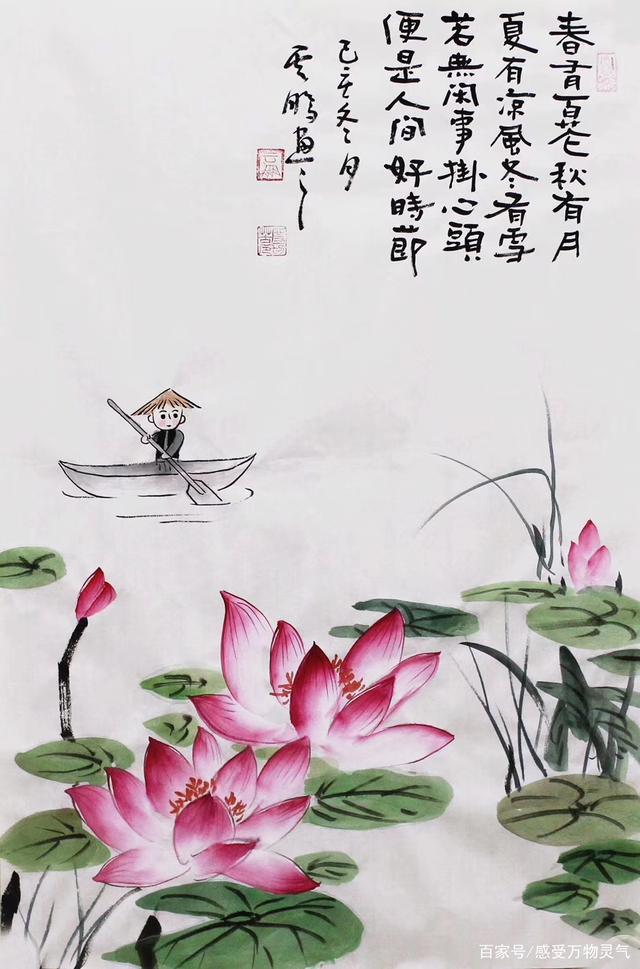 春有百花秋有月
夏有凉風冬有雪
若無闲事掛心頭
便是人间好時節
己亥冬月
雲鵬画之
百家号/感受万物灵气